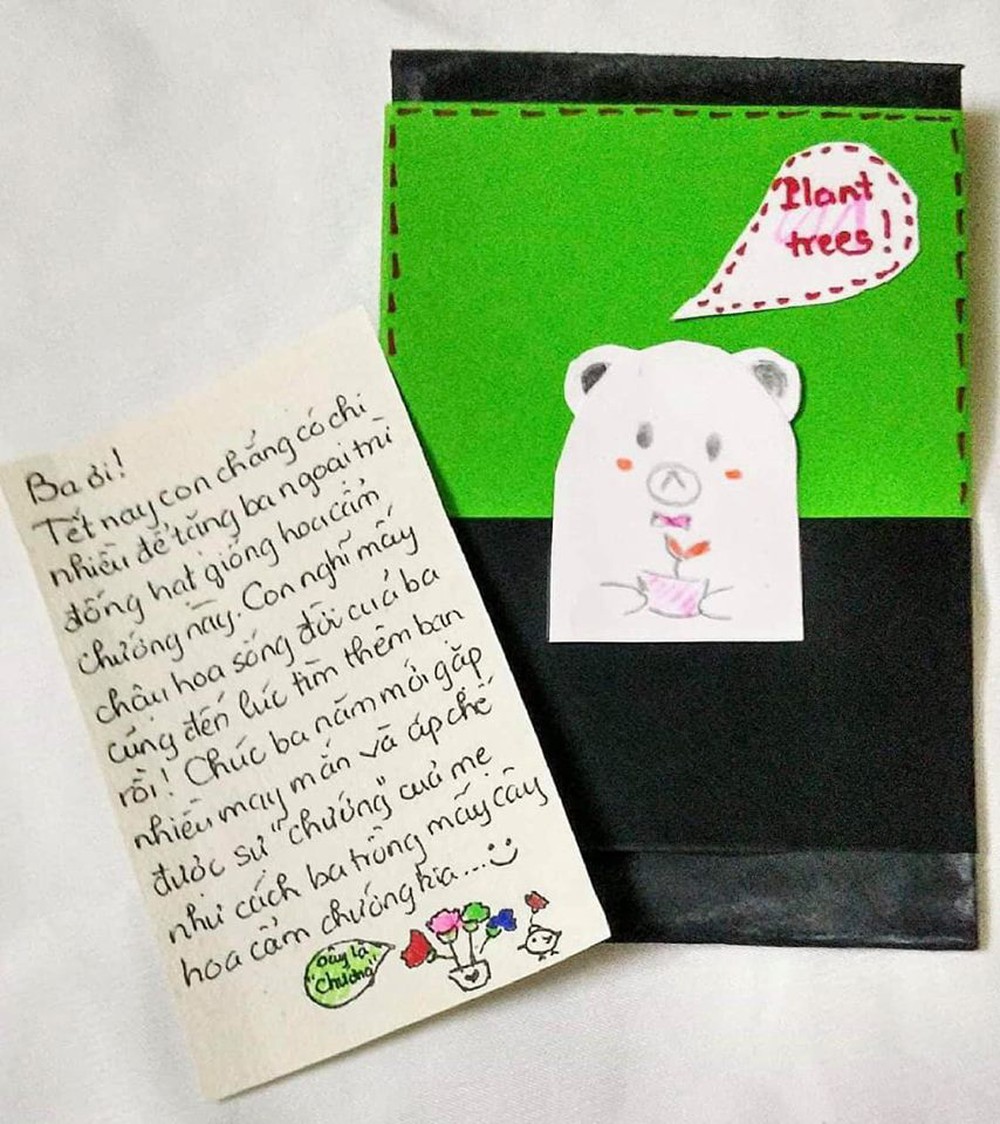 Plant
trees!
Ba ơi!
Tết nay con chẳng có chi
nhiều để tặng ba ngoại trừ
đống hạt giống hoa cẩm
chướng này. Con nghĩ mấy
chậu hoa sống đời của ba
cũng đến lúc tìm thêm bạn
rồi! Chúc ba năm mới gặp
nhiều may mắn và áp chế
được sự "chướng" của mẹ
như cách ba trồng mấy cây
hoa cẩm chướng kia...
Đây là
"chướng"